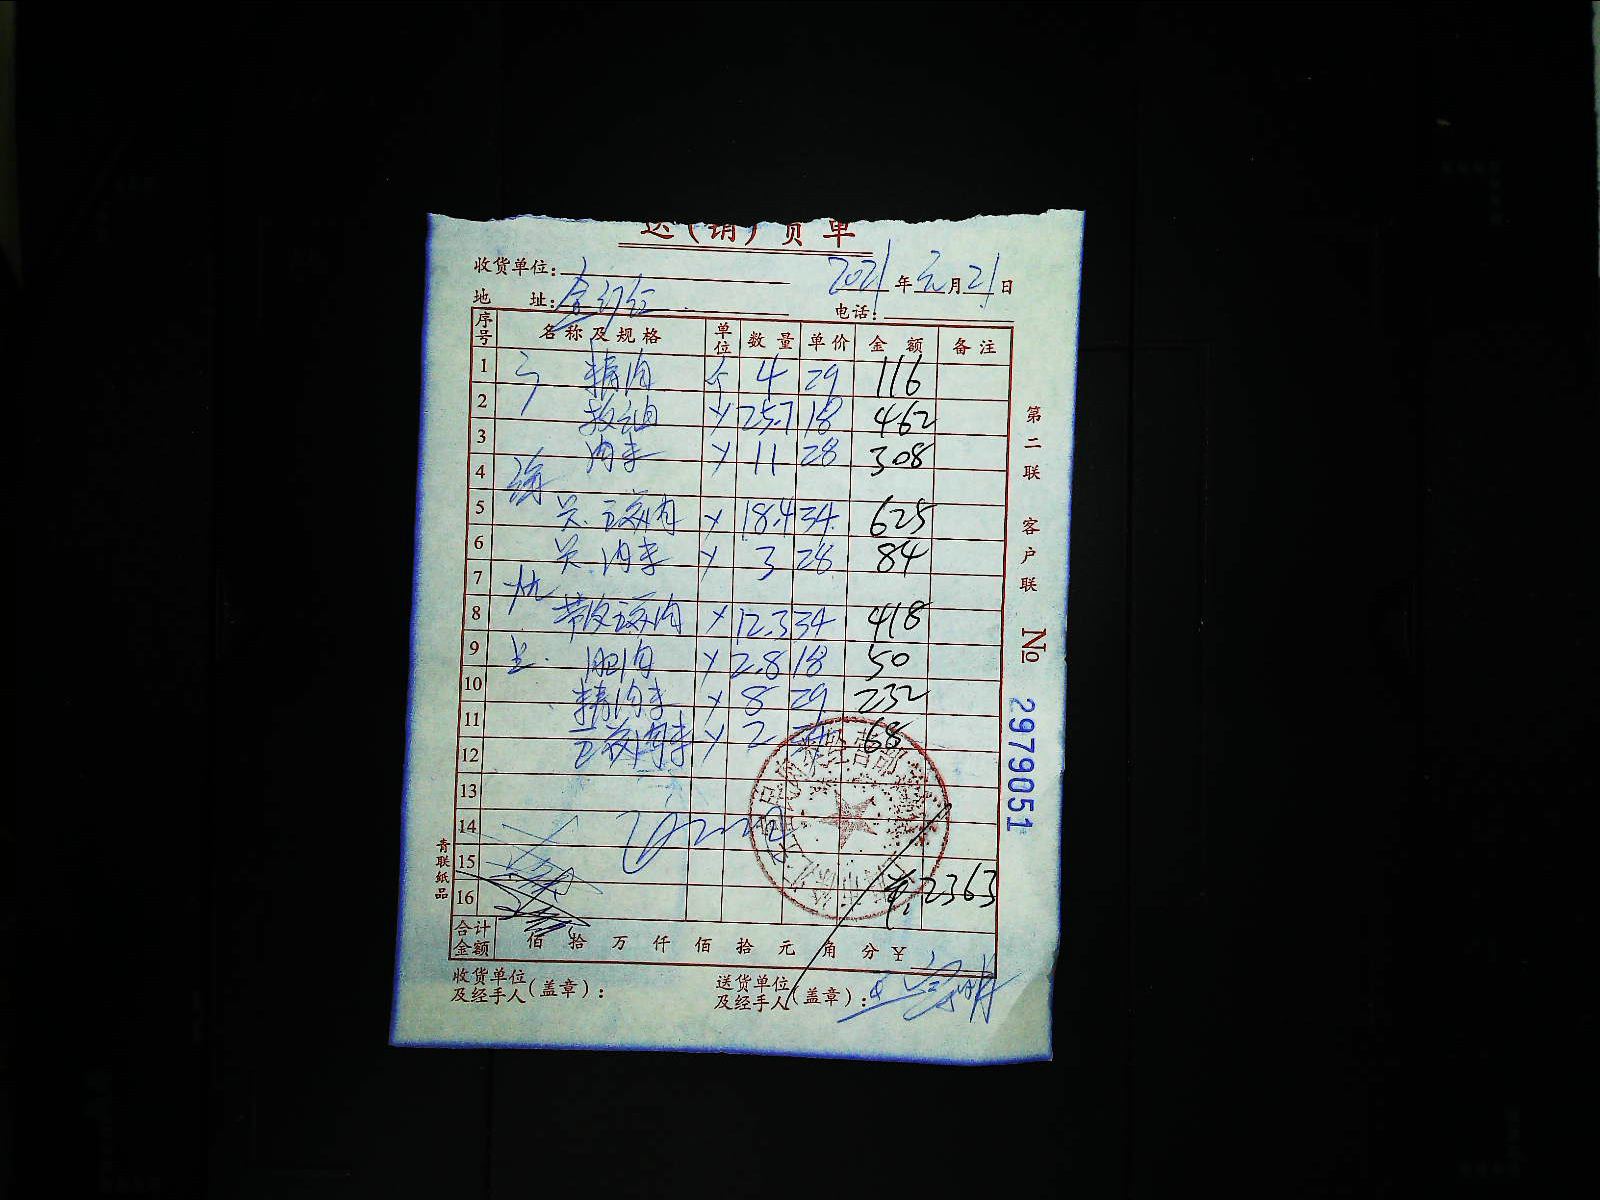 送(销)货单
收货单位:
2021年元月21日
地 址:
电话:
序号 名称及规格 单位 数量 单价 金额 备注
1 精肉 个 4 29 116
2 板油 25.7 18 462
3 肉末 11 28 308
4
5 五花肉 18.4 34 625
6 肉末 3 28 84
7
8 带皮五花肉 12.3 34 418
9 肥肉 2.8 18 50
10 精肉末 8 29 232
11 五花肉末 2 34 68
12
13
14
15
16 ¥:2363
合计金额 佰 拾 万 仟 佰 拾 元 角 分 ¥
收货单位及经手人(盖章):
送货单位及经手人(盖章):
第二联 客户联
No 2979051
青联纸品
经营部